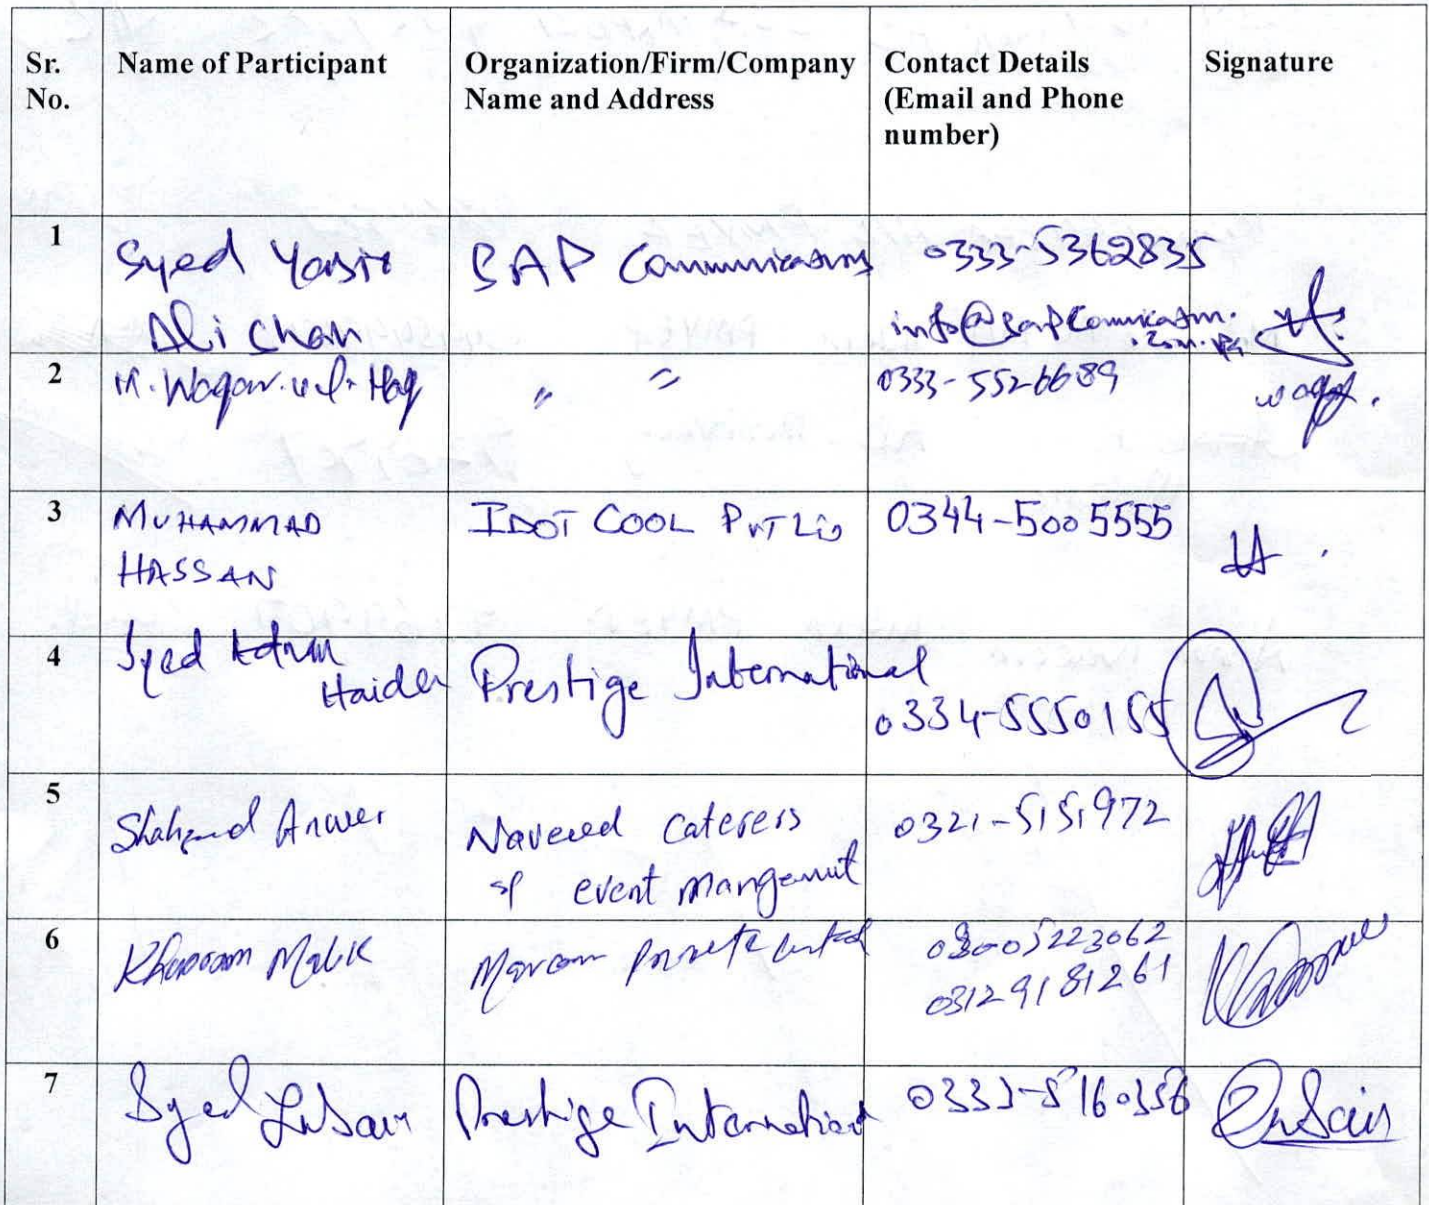 Sr. No.
Name of Participant
Organization/Firm/Company Name and Address
Contact Details (Email and Phone number)
Signature
1
Syed Yasir
Ali Shan
SAP Communications
0333-5362835
2
M. Waqar-ul-Haq
"        "
0333-5526689
3
MUHAMMAD
HASSAN
IDOT COOL PVT LTD
0344-5005555
4
Syed Adnan
Haider
Prestige International
0334-5550155
5
Shahzad Anwer
Naveed Caterers
event Mangemut
0321-5151972
6
Khurram Malik
03005223062
03129181261
7
Syed
Prestige International
0333-5160356